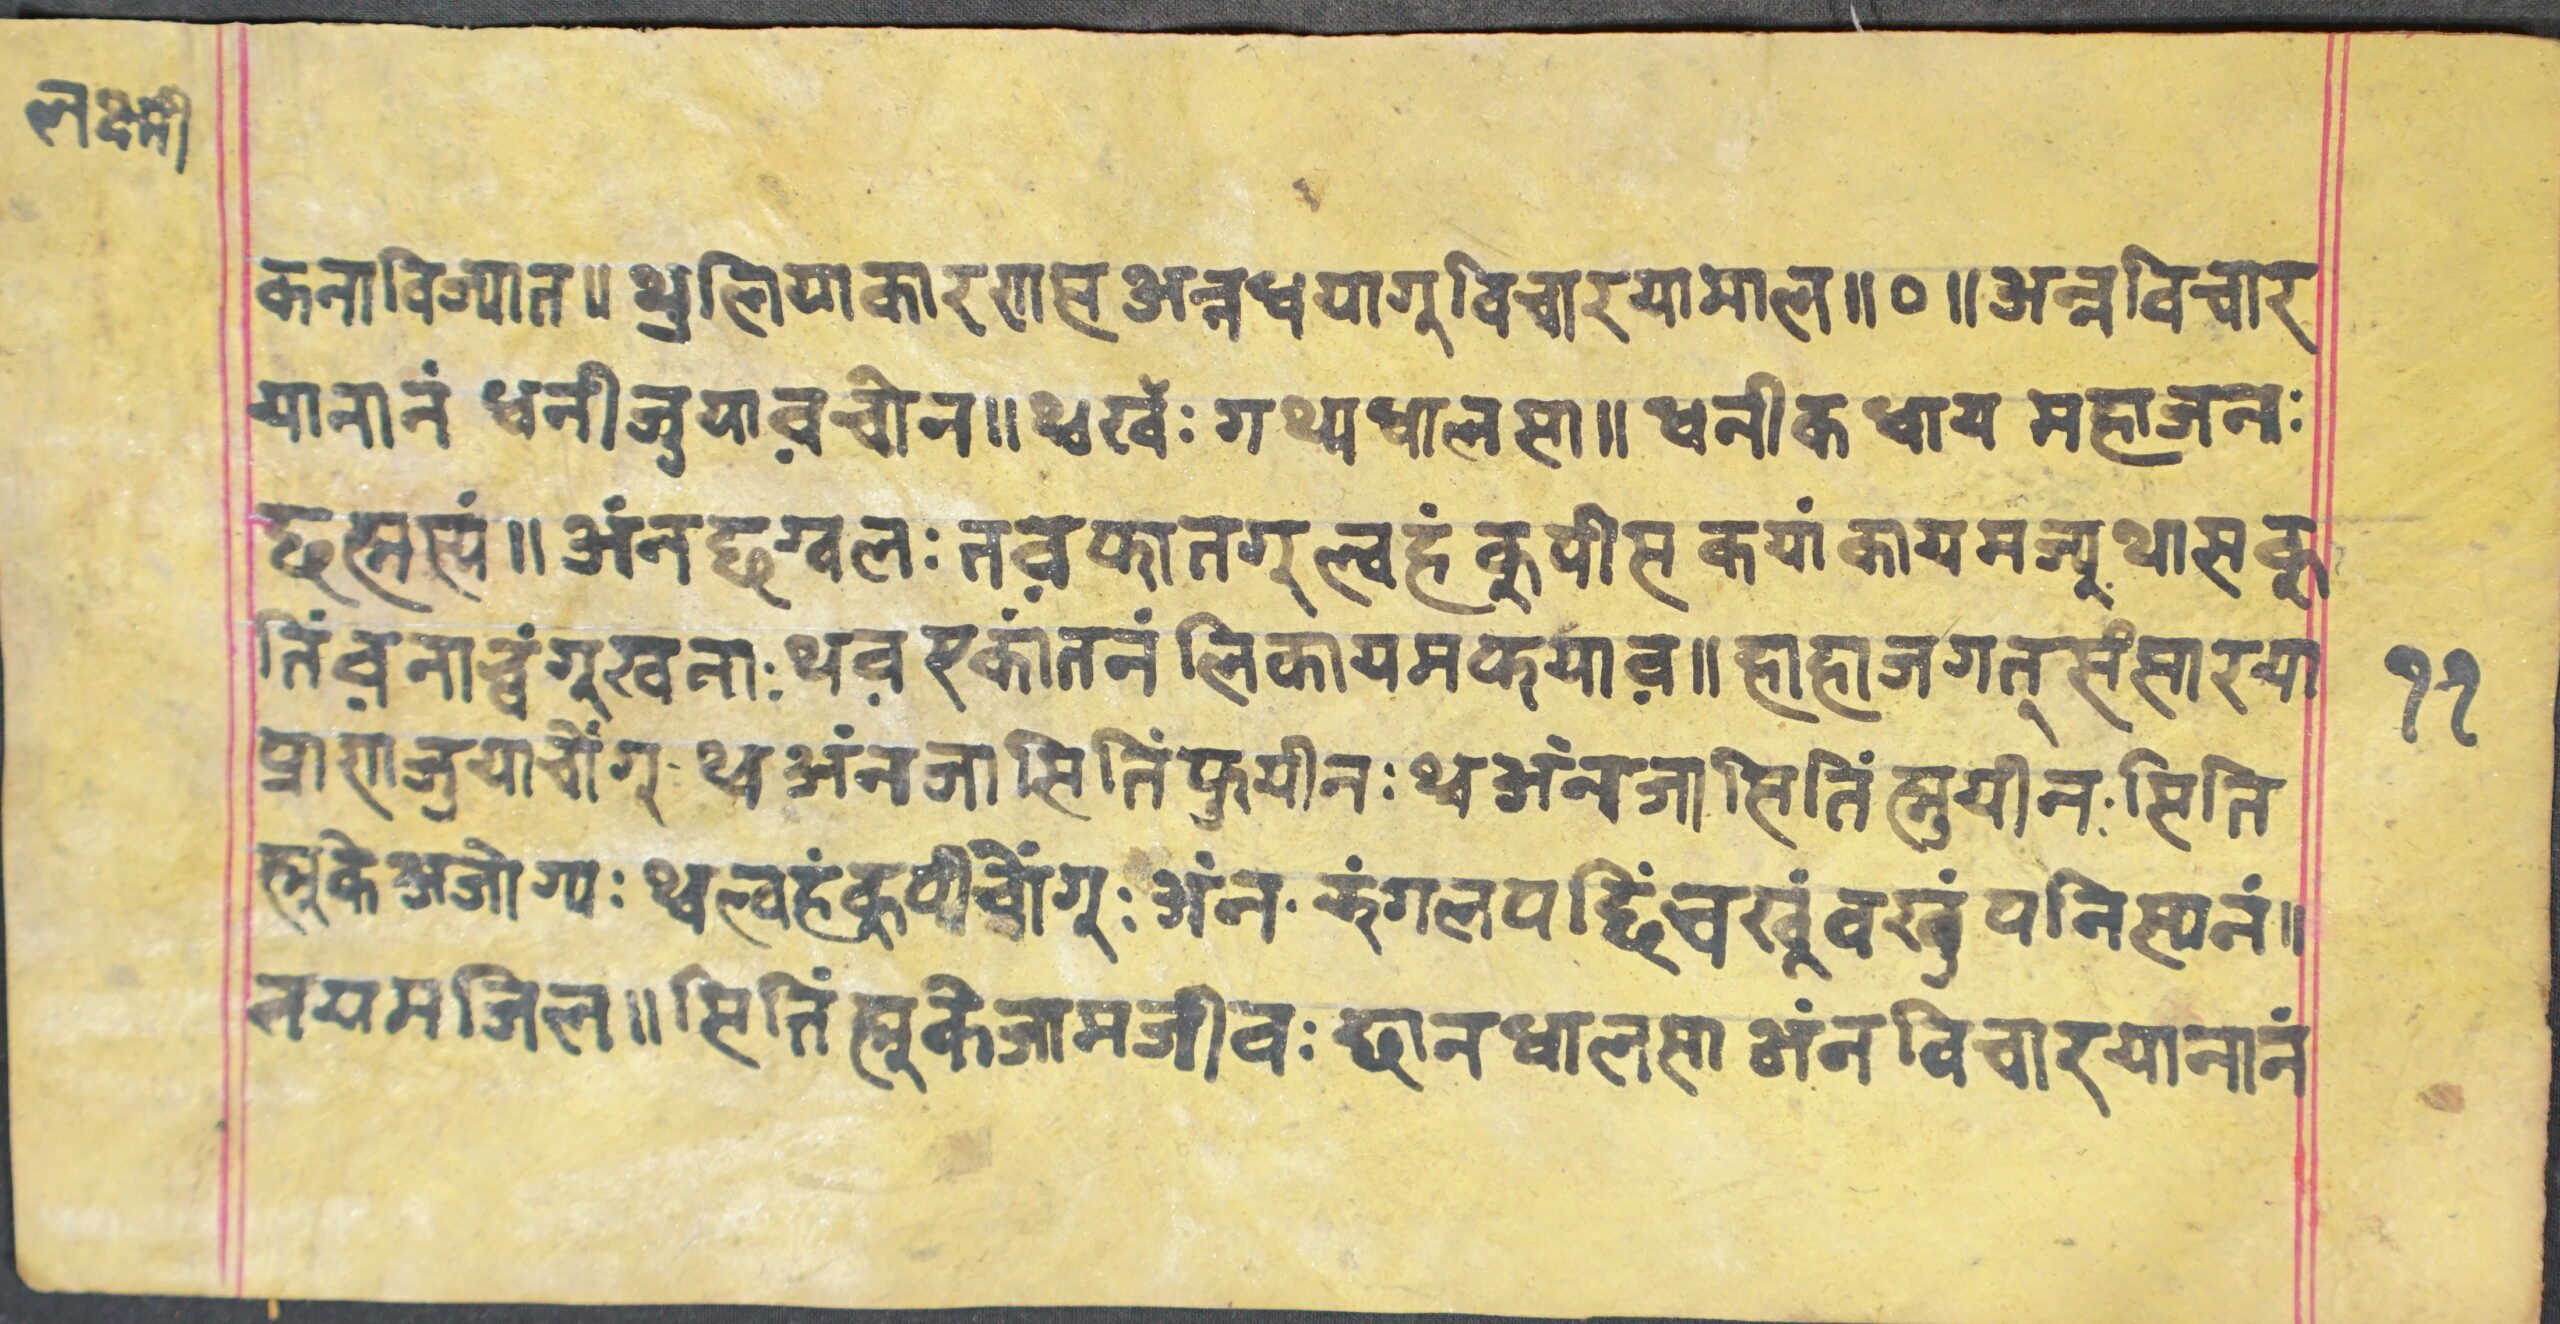 लक्ष्मी
कनाविज्यात॥ थुलियाकारणस अन्नधयागु विचारयामाल॥०॥ अन्नविचार
यानानं धनीजुयाव़चोन॥ थ्वखँः गथ्यधालसा॥ धनीकधाय महाजनः
छह्मस्यं॥ अंनछग्वलः तव़फातगू ल्वहंकुपीस कयांकायमज्यू थासकू
तिंव़नाच्वंगूखना: थव़ एकांतनं लिकायमफयाव़॥ हाहाजगत् संसारया
प्राणजुयाचोंगू थ्वअंनजा सितिंफुयीनः थ्वअंनजा सितिंह्नुयीन: सिति
ह्नुके अजोग्यः थ्वल्वहंकुपीचोंगूः अंन झंगलपछिंचखुंवखुं पनिस्यनं॥
नयमजिल॥ सितिंह्नुकेजामजीवः छानधालसा अंनविचारयानानं
११